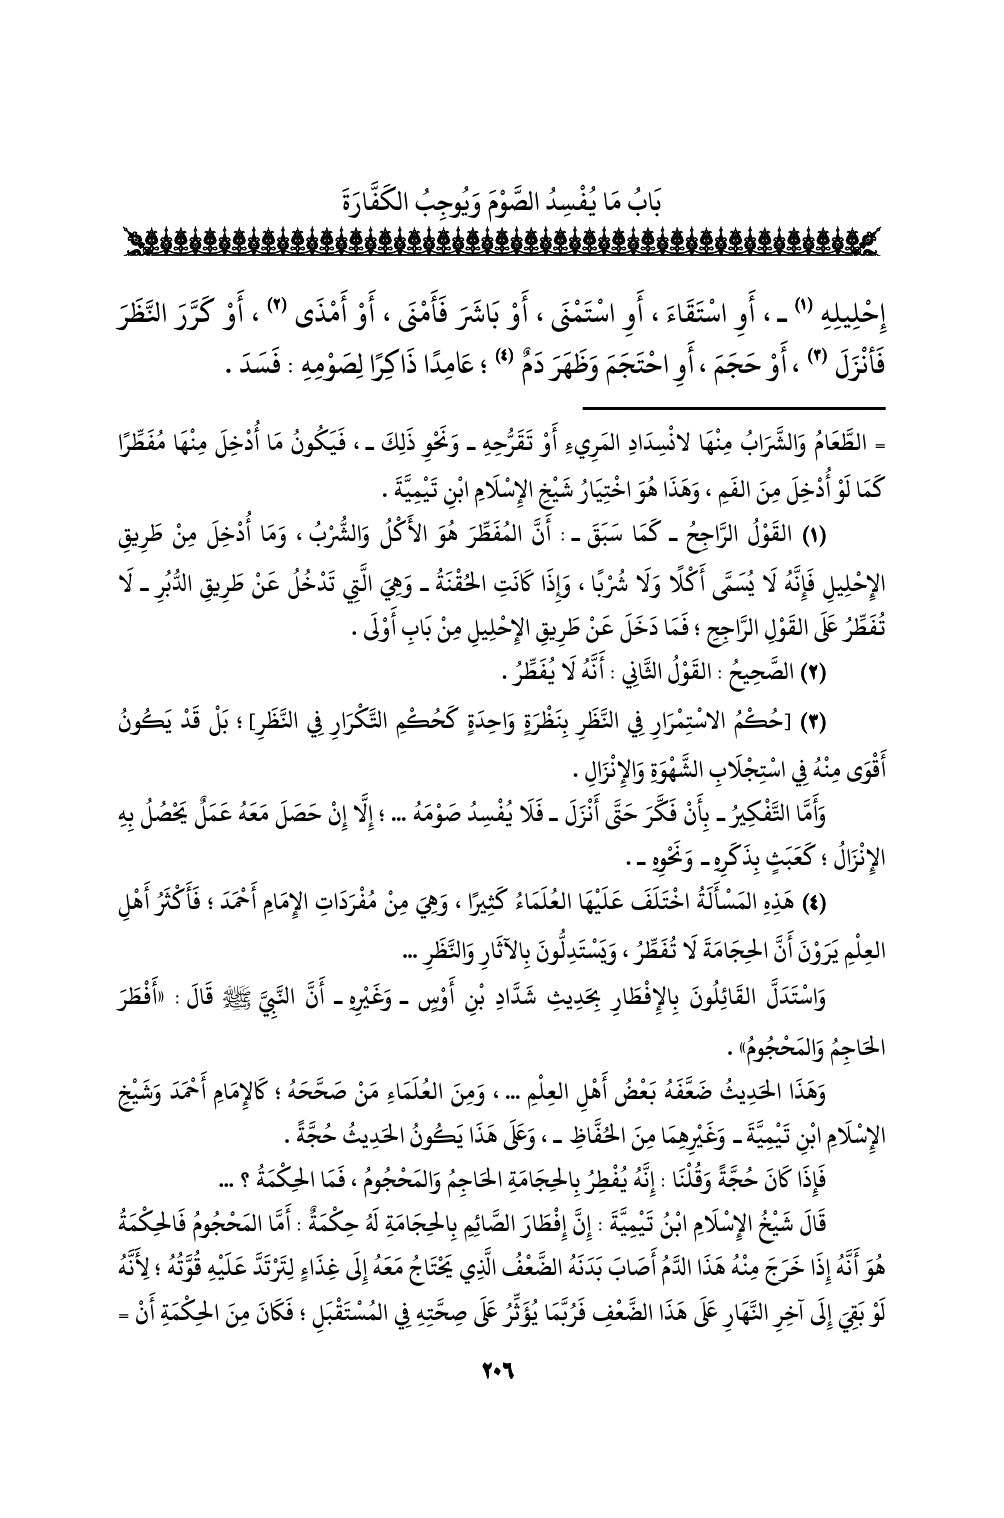 بَابُ مَا يُفْسِدُ الصَّوْمَ وَيُوجِبُ الكَفَّارَةَ
إِحْلِيلِهِ (١) ـ ، أَوِ اسْتَقَاءَ ، أَوِ اسْتَمْنَى ، أَوْ بَاشَرَ فَأَمْنَى ، أَوْ أَمْذَى (٢) ، أَوْ كَرَّرَ النَّظَرَ
فَأَنْزَلَ (٣) ، أَوْ حَجَمَ ، أَوِ احْتَجَمَ وَظَهَرَ دَمٌ (٤) ؛ عَامِدًا ذَاكِرًا لِصَوْمِهِ : فَسَدَ .
= الطَّعَامُ وَالشَّرَابُ مِنْهَا لانْسِدَادِ المَرِيءِ أَوْ تَقَرُّحِهِ ـ وَنَحْوِ ذَلِكَ ـ ، فَيَكُونُ مَا أُدْخِلَ مِنْهَا مُفَطِّرًا
كَمَا لَوْ أُدْخِلَ مِنَ الفَمِ ، وَهَذَا هُوَ اخْتِيَارُ شَيْخِ الإِسْلَامِ ابْنِ تَيْمِيَّةَ .
(١) القَوْلُ الرَّاجِحُ ـ كَمَا سَبَقَ ـ : أَنَّ المُفَطِّرَ هُوَ الأَكْلُ وَالشُّرْبُ ، وَمَا أُدْخِلَ مِنْ طَرِيقِ
الإِحْلِيلِ فَإِنَّهُ لَا يُسَمَّى أَكْلًا وَلَا شُرْبًا ، وَإِذَا كَانَتِ الحُقْنَةُ ـ وَهِيَ الَّتِي تَدْخُلُ عَنْ طَرِيقِ الدُّبُرِ ـ لَا
تُفَطِّرُ عَلَى القَوْلِ الرَّاجِحِ ؛ فَمَا دَخَلَ عَنْ طَرِيقِ الإِحْلِيلِ مِنْ بَابِ أَوْلَى .
(٢) الصَّحِيحُ : القَوْلُ الثَّانِي : أَنَّهُ لَا يُفَطِّرُ .
(٣) [حُكْمُ الاسْتِمْرَارِ فِي النَّظَرِ بِنَظْرَةٍ وَاحِدَةٍ كَحُكْمِ التَّكْرَارِ فِي النَّظَرِ] ؛ بَلْ قَدْ يَكُونُ
أَقْوَى مِنْهُ فِي اسْتِجْلَابِ الشَّهْوَةِ وَالإِنْزَالِ .
وَأَمَّا التَّفْكِيرُ ـ بِأَنْ فَكَّرَ حَتَّى أَنْزَلَ ـ فَلَا يُفْسِدُ صَوْمَهُ ... ؛ إِلَّا إِنْ حَصَلَ مَعَهُ عَمَلٌ يَحْصُلُ بِهِ
الإِنْزَالُ ؛ كَعَبَثٍ بِذَكَرِهِ ـ وَنَحْوِهِ ـ .
(٤) هَذِهِ المَسْأَلَةُ اخْتَلَفَ عَلَيْهَا العُلَمَاءُ كَثِيرًا ، وَهِيَ مِنْ مُفْرَدَاتِ الإِمَامِ أَحْمَدَ ؛ فَأَكْثَرُ أَهْلِ
العِلْمِ يَرَوْنَ أَنَّ الحِجَامَةَ لَا تُفَطِّرُ ، وَيَسْتَدِلُّونَ بِالآثَارِ وَالنَّظَرِ ...
وَاسْتَدَلَّ القَائِلُونَ بِالإِفْطَارِ بِحَدِيثِ شَدَّادِ بْنِ أَوْسٍ ـ وَغَيْرِهِ ـ أَنَّ النَّبِيَّ ﷺ قَالَ : «أَفْطَرَ
الحَاجِمُ وَالمَحْجُومُ» .
وَهَذَا الحَدِيثُ ضَعَّفَهُ بَعْضُ أَهْلِ العِلْمِ ... ، وَمِنَ العُلَمَاءِ مَنْ صَحَّحَهُ ؛ كَالإِمَامِ أَحْمَدَ وَشَيْخِ
الإِسْلَامِ ابْنِ تَيْمِيَّةَ ـ وَغَيْرِهِمَا مِنَ الحُفَّاظِ ـ ، وَعَلَى هَذَا يَكُونُ الحَدِيثُ حُجَّةً .
فَإِذَا كَانَ حُجَّةً وَقُلْنَا : إِنَّهُ يُفْطِرُ بِالحِجَامَةِ الحَاجِمُ وَالمَحْجُومُ ، فَمَا الحِكْمَةُ ؟ ...
قَالَ شَيْخُ الإِسْلَامِ ابْنُ تَيْمِيَّةَ : إِنَّ إِفْطَارَ الصَّائِمِ بِالحِجَامَةِ لَهُ حِكْمَةٌ : أَمَّا المَحْجُومُ فَالحِكْمَةُ
هُوَ أَنَّهُ إِذَا خَرَجَ مِنْهُ هَذَا الدَّمُ أَصَابَ بَدَنَهُ الضَّعْفُ الَّذِي يَحْتَاجُ مَعَهُ إِلَى غِذَاءٍ لِتَرْتَدَّ عَلَيْهِ قُوَّتُهُ ؛ لِأَنَّهُ
لَوْ بَقِيَ إِلَى آخِرِ النَّهَارِ عَلَى هَذَا الضَّعْفِ فَرُبَّمَا يُؤَثِّرُ عَلَى صِحَّتِهِ فِي المُسْتَقْبَلِ ؛ فَكَانَ مِنَ الحِكْمَةِ أَنْ =
٢٠٦